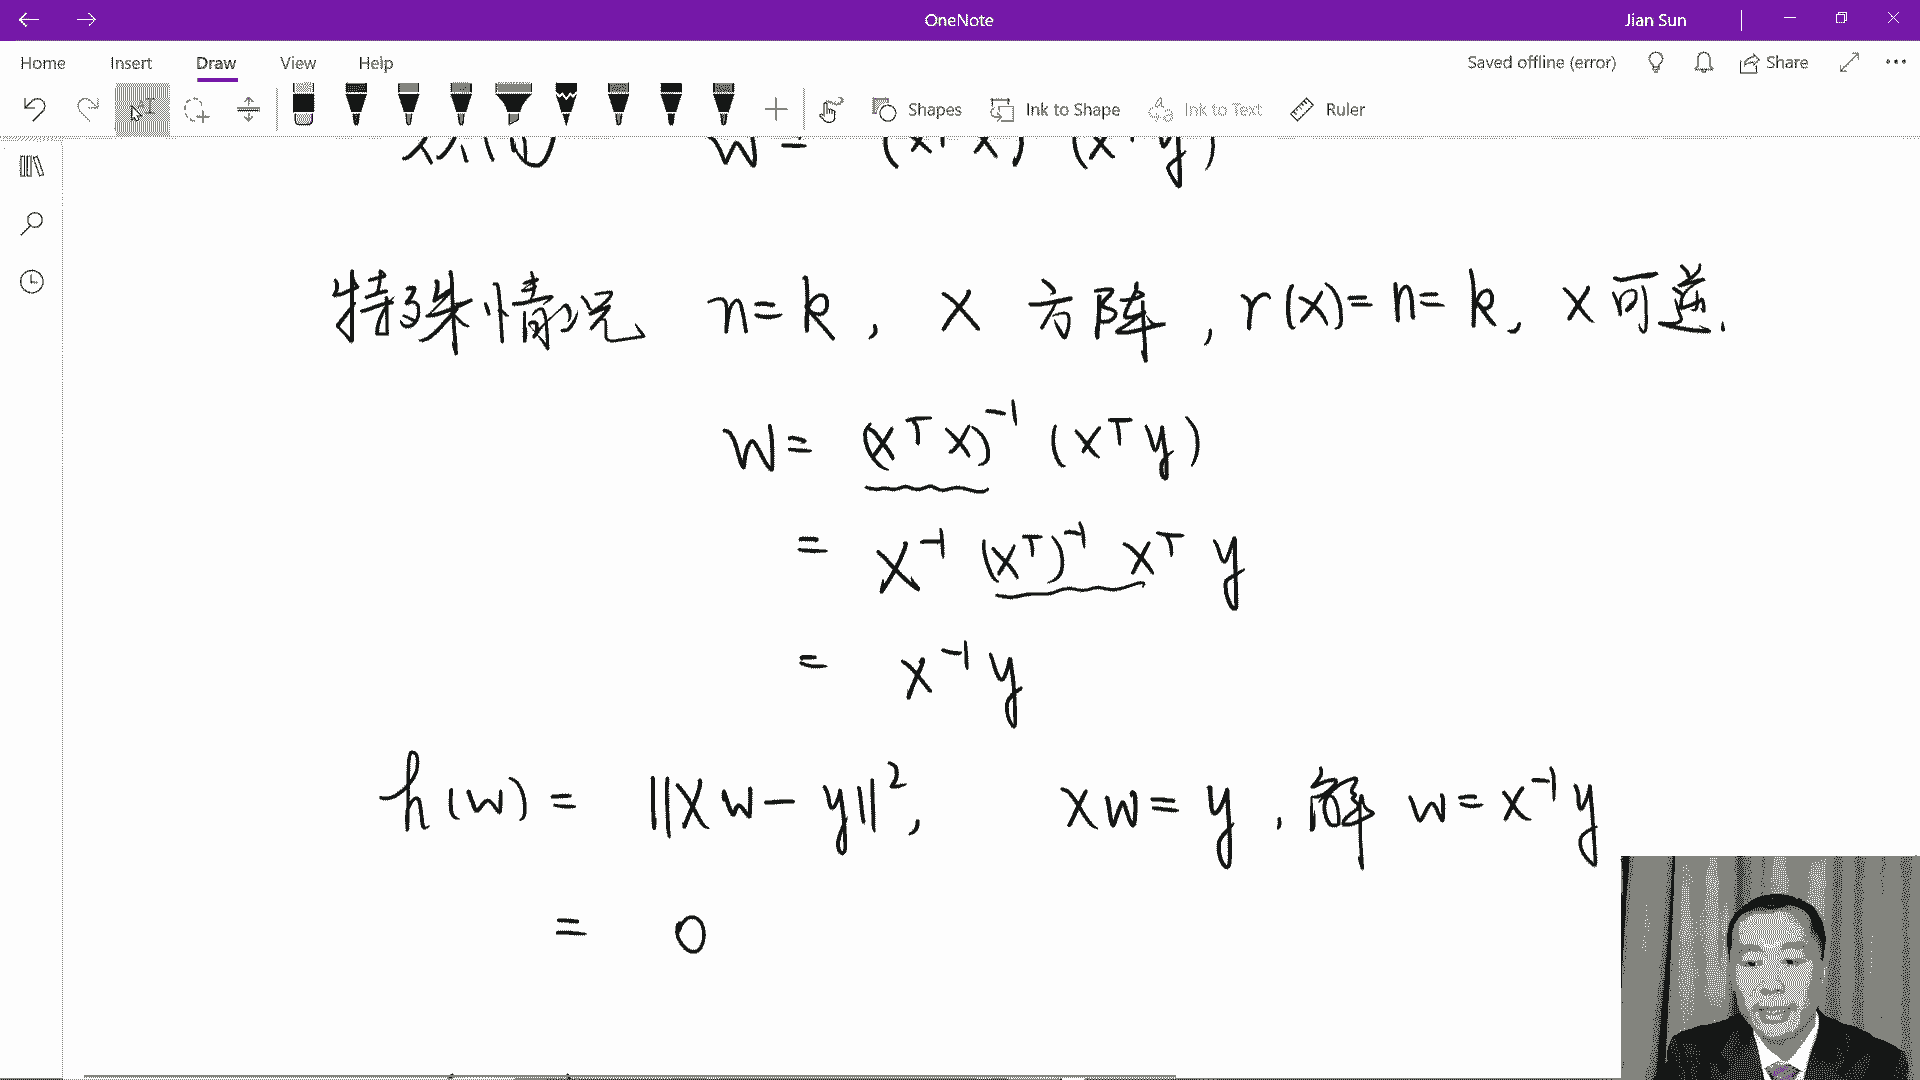 OneNote
Jian Sun
Home Insert Draw View Help
Saved offline (error) Share
Shapes Ink to Shape Ink to Text Ruler
w = (xᵀx) (xᵀy)
特殊情况 n=k, X 方阵, r(X)=n=k, X可逆.
w = (xᵀx)⁻¹ (xᵀy)
= x⁻¹ (xᵀ)⁻¹ xᵀ y
= x⁻¹ y
h(w) = ||Xw-y||², Xw=y, 解 w=x⁻¹y
= 0